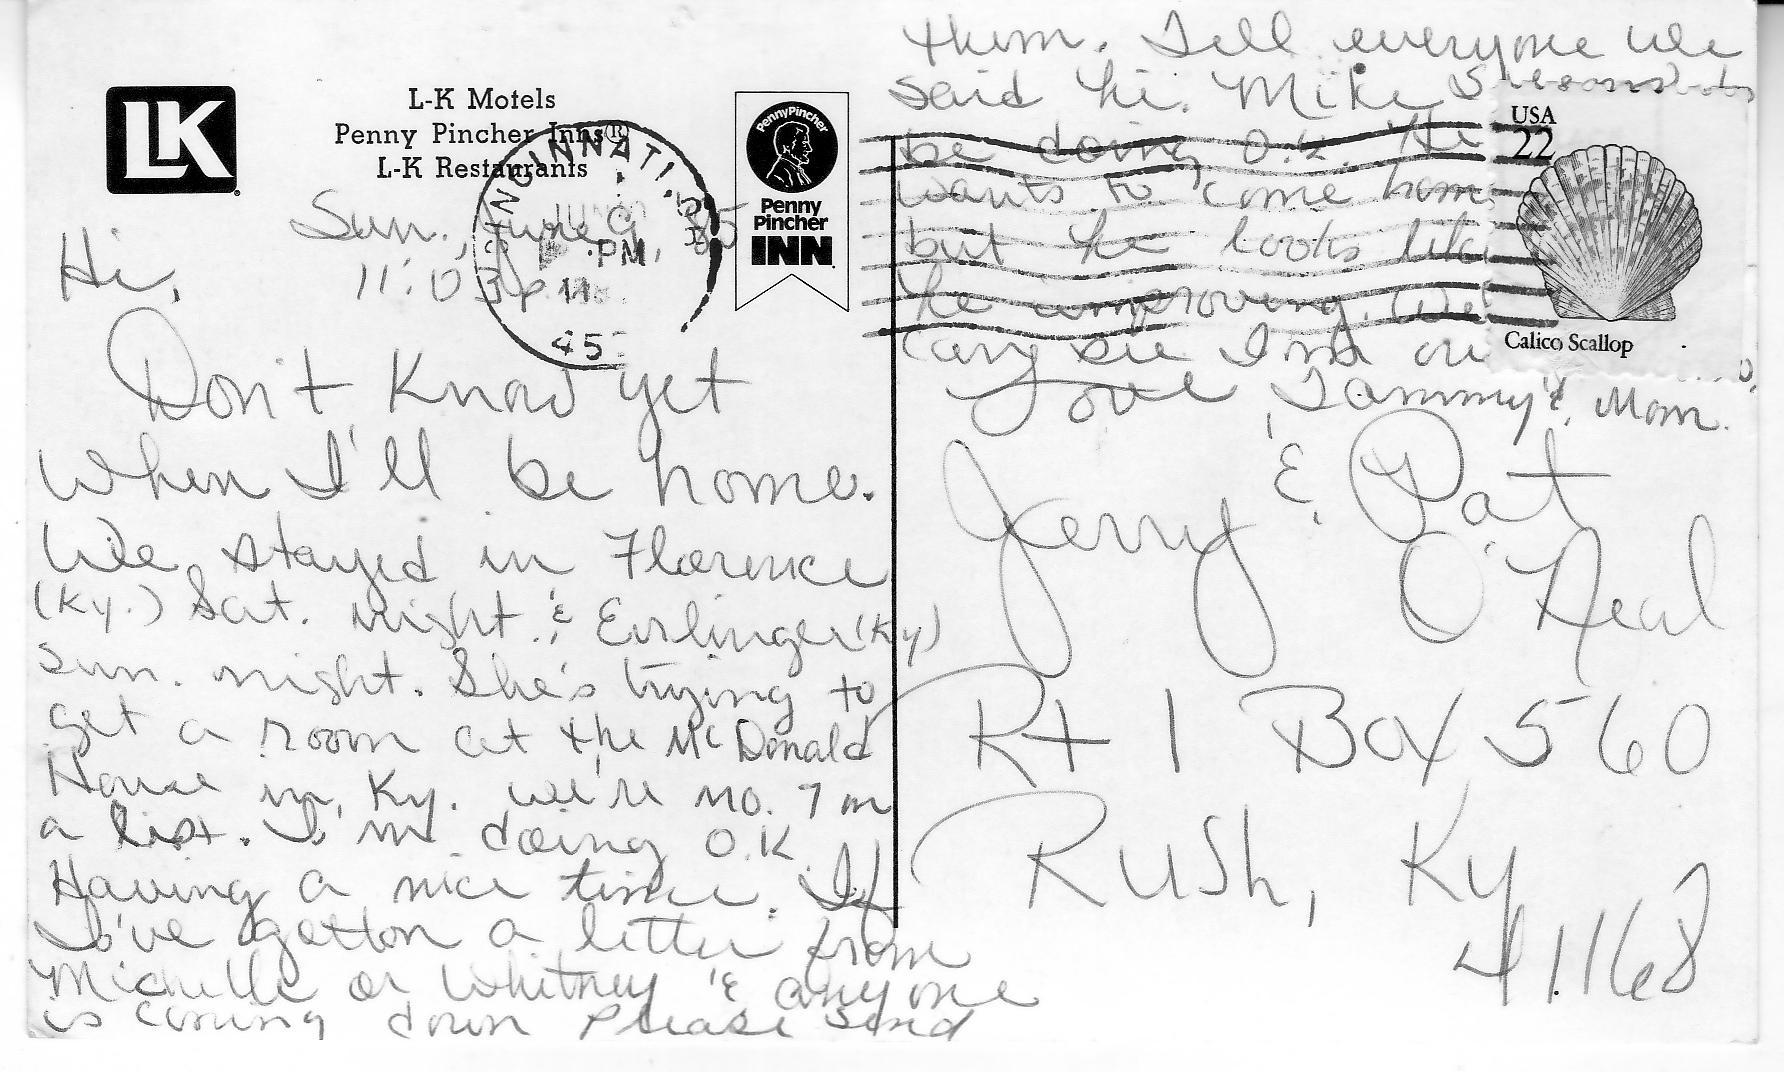 LK
L-K Motels
Penny Pincher Inns®
L-K Restaurants
PennyPincher
Penny
Pincher
INN
CINCINNATI,
PM
45
USA
22
Calico Scallop
Sun., June 9, 85
11:03 pm
Hi,
Don't know yet
when I'll be home.
We stayed in Florence
(Ky.) Sat. night & Evilinger (Ky)
sun. night. She's trying to
get a room at the McDonald
House in Ky. we're no. 7 on
a list. I'm doing O.K.
Having a nice time. If
I've getton a letter from
Michelle or Whitney & anyone
is coming down please send
them. Tell everyone we
said hi. Mike
be doing O.K. He
wants to come home
but he looks like
he improving. We
can see I'm
Love, Tammy & Mom.
Jerry & Pat
O'Neal
Rt 1 Box 560
Rush, Ky
41168